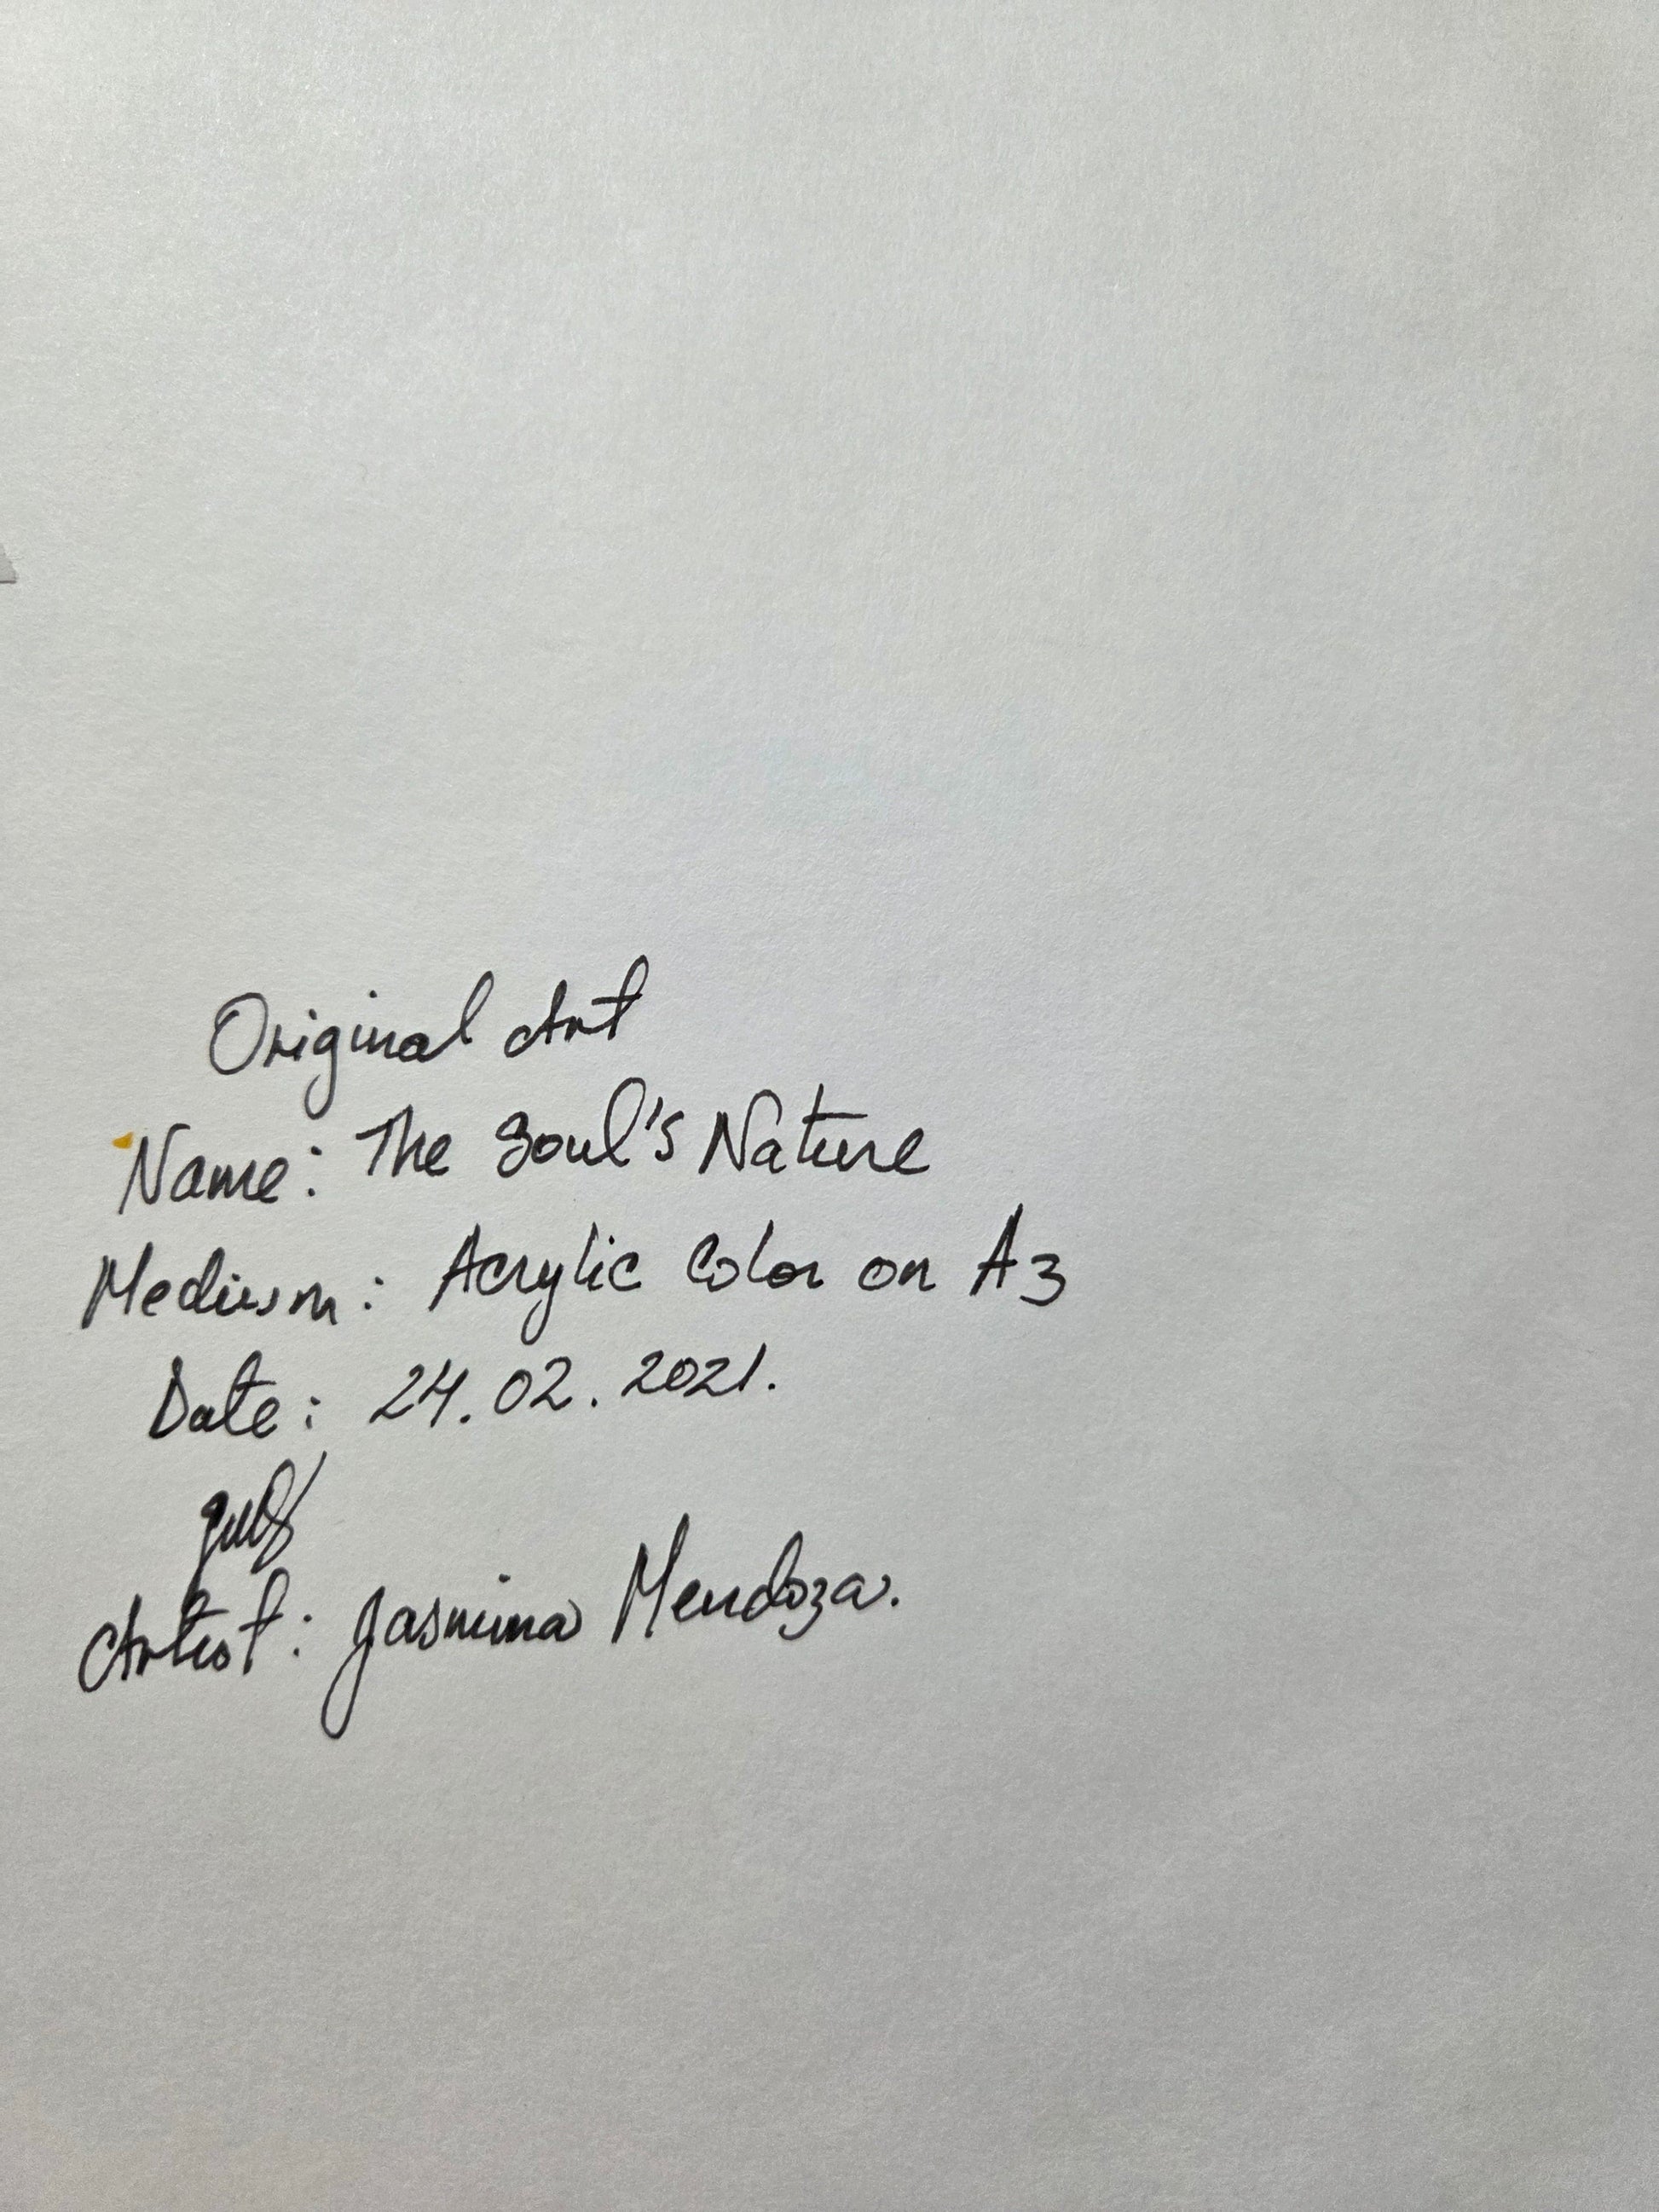 Original Art
Name: The Soul's Nature
Medium: Acrylic Color on A3
Date: 24.02.2021.
Artist: Jasmina Mendoza.